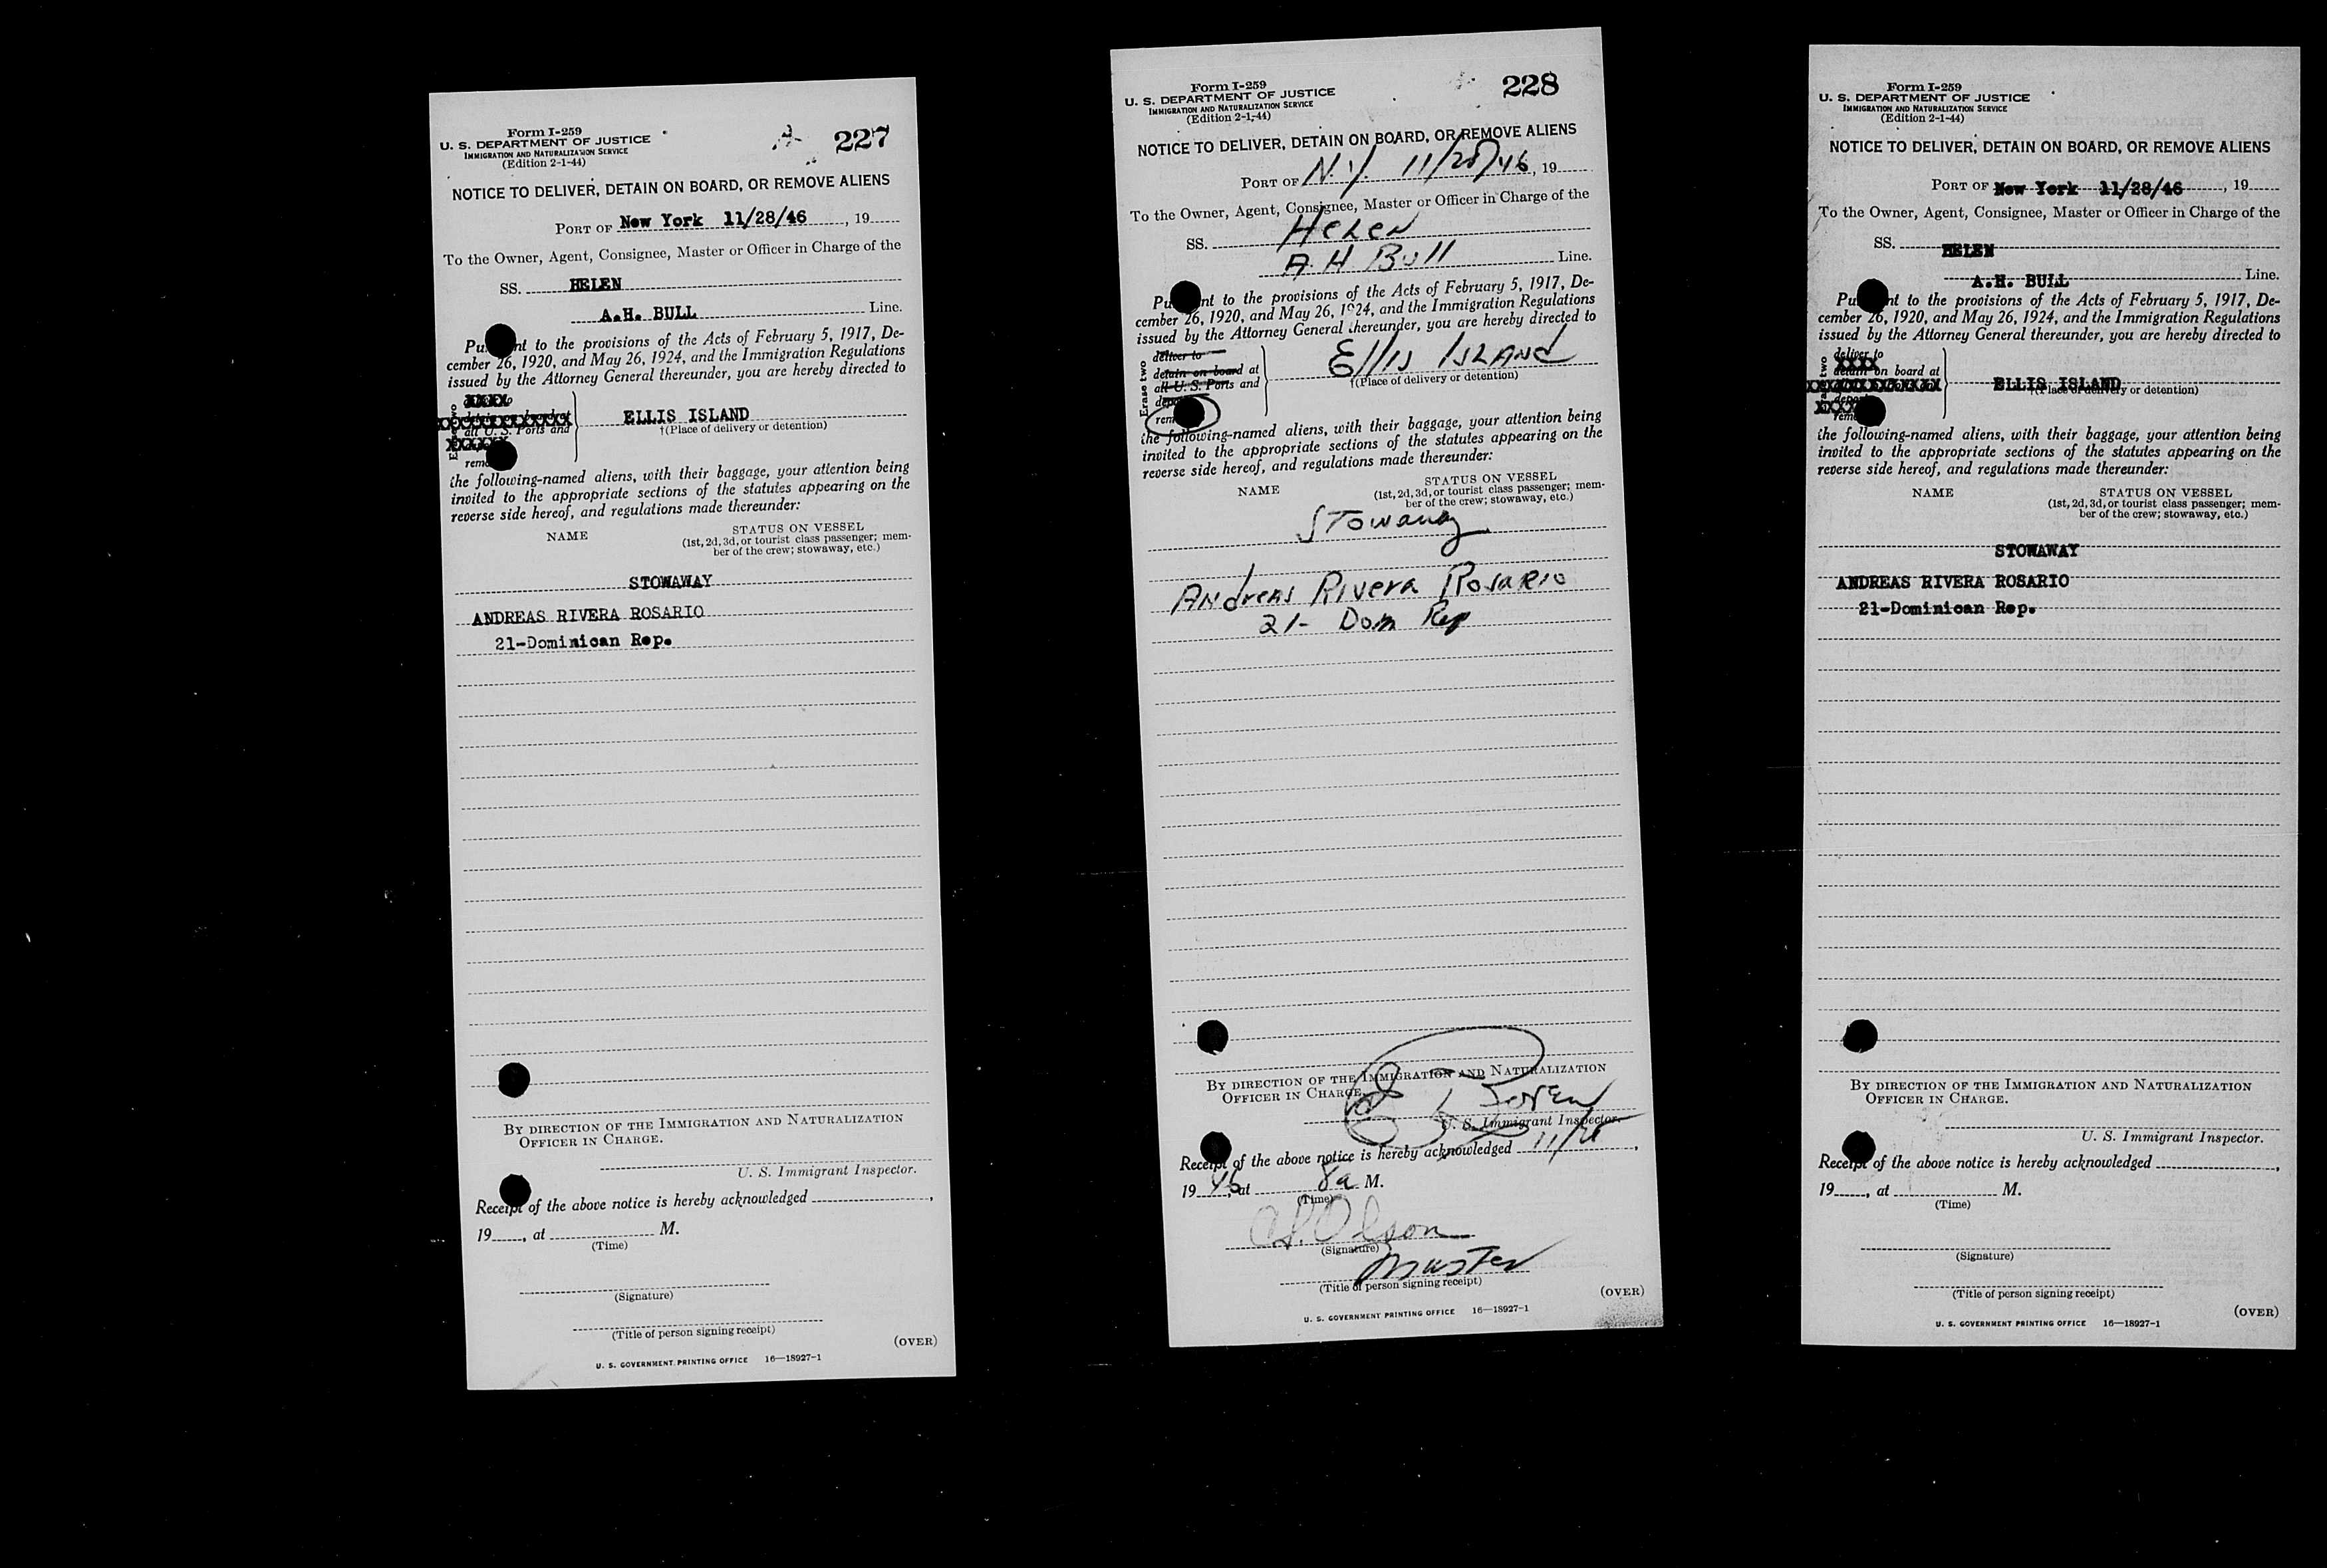 Form I-259
U. S. DEPARTMENT OF JUSTICE
IMMIGRATION AND NATURALIZATION SERVICE
(Edition 2-1-44)
227
NOTICE TO DELIVER, DETAIN ON BOARD, OR REMOVE ALIENS
PORT OF New York 11/28/46, 19
To the Owner, Agent, Consignee, Master or Officer in Charge of the
SS. HELEN
A.H. BULL Line.
Pu nt to the provisions of the Acts of February 5, 1917, De-
cember 26, 1920, and May 26, 1924, and the Immigration Regulations
issued by the Attorney General thereunder, you are hereby directed to
XXXX
detain on board at
all U. S. Ports and
XXXXXX
remo
ELLIS ISLAND
†(Place of delivery or detention)
the following-named aliens, with their baggage, your attention being
invited to the appropriate sections of the statutes appearing on the
reverse side hereof, and regulations made thereunder:
NAME
STATUS ON VESSEL
(1st, 2d, 3d, or tourist class passenger; mem-
ber of the crew; stowaway, etc.)
STOWAWAY
ANDREAS RIVERA ROSARIO
21-Dominican Rep.
BY DIRECTION OF THE IMMIGRATION AND NATURALIZATION
OFFICER IN CHARGE.
U. S. Immigrant Inspector.
Receipt of the above notice is hereby acknowledged ,
19 , at M.
(Time)
(Signature)
(Title of person signing receipt)
(OVER)
U. S. GOVERNMENT PRINTING OFFICE 16—18927-1
Form I-259
U. S. DEPARTMENT OF JUSTICE
IMMIGRATION AND NATURALIZATION SERVICE
(Edition 2-1-44)
228
NOTICE TO DELIVER, DETAIN ON BOARD, OR REMOVE ALIENS
PORT OF N.Y. 11/28/46, 19
To the Owner, Agent, Consignee, Master or Officer in Charge of the
SS. Helen
A H Bull Line.
Pu nt to the provisions of the Acts of February 5, 1917, De-
cember 26, 1920, and May 26, 1924, and the Immigration Regulations
issued by the Attorney General thereunder, you are hereby directed to
Erase two
deliver to
detain on board at
all U. S. Ports and
depo
rem
Ellis Island
†(Place of delivery or detention)
the following-named aliens, with their baggage, your attention being
invited to the appropriate sections of the statutes appearing on the
reverse side hereof, and regulations made thereunder:
NAME
STATUS ON VESSEL
(1st, 2d, 3d, or tourist class passenger; mem-
ber of the crew; stowaway, etc.)
Stowaway
Andreas Rivera Rosario
21- Dom Rep
BY DIRECTION OF THE IMMIGRATION AND NATURALIZATION
OFFICER IN CHARGE.
U. S. Immigrant Inspector.
Receipt of the above notice is hereby acknowledged 11/28,
1946, at 8a M.
(Time)
Olson
(Signature)
Master
(Title of person signing receipt)
(OVER)
U. S. GOVERNMENT PRINTING OFFICE 16—18927-1
Form I-259
U. S. DEPARTMENT OF JUSTICE
IMMIGRATION AND NATURALIZATION SERVICE
(Edition 2-1-44)
NOTICE TO DELIVER, DETAIN ON BOARD, OR REMOVE ALIENS
PORT OF New York 11/28/46, 19
To the Owner, Agent, Consignee, Master or Officer in Charge of the
SS. HELEN
A.H. BULL Line.
Pu nt to the provisions of the Acts of February 5, 1917, De-
cember 26, 1920, and May 26, 1924, and the Immigration Regulations
issued by the Attorney General thereunder, you are hereby directed to
deliver to
detain on board at
XXXXXXXXXXXXX
depo
remo
ELLIS ISLAND
†(Place of delivery or detention)
the following-named aliens, with their baggage, your attention being
invited to the appropriate sections of the statutes appearing on the
reverse side hereof, and regulations made thereunder:
NAME
STATUS ON VESSEL
(1st, 2d, 3d, or tourist class passenger; mem-
ber of the crew; stowaway, etc.)
STOWAWAY
ANDREAS RIVERA ROSARIO
21-Dominican Rep.
BY DIRECTION OF THE IMMIGRATION AND NATURALIZATION
OFFICER IN CHARGE.
U. S. Immigrant Inspector.
Receipt of the above notice is hereby acknowledged ,
19 , at M.
(Time)
(Signature)
(Title of person signing receipt)
(OVER)
U. S. GOVERNMENT PRINTING OFFICE 16—18927-1